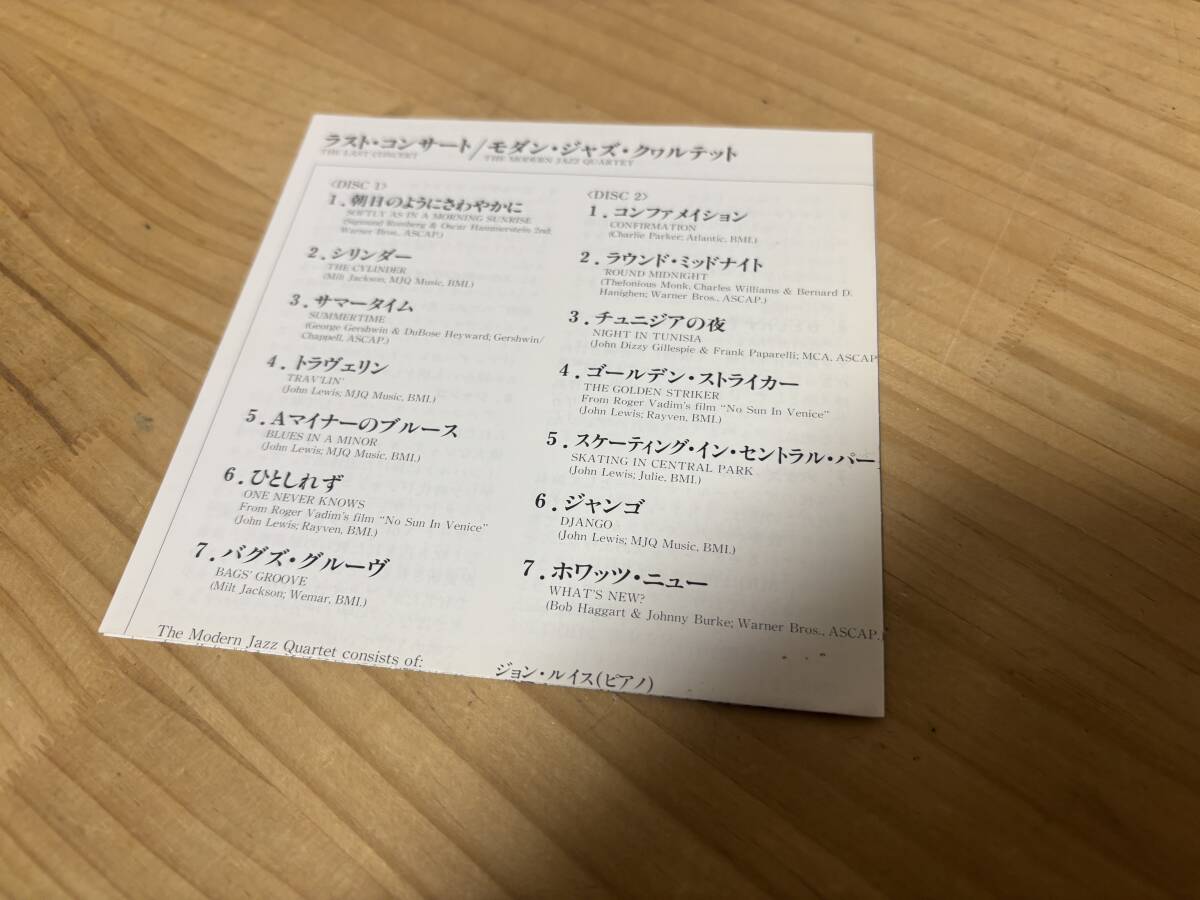 ラスト・コンサート/モダン・ジャズ・クヮルテット
THE LAST CONCERT THE MODERN JAZZ QUARTET
〈DISC 1〉
1. 朝日のようにさわやかに
SOFTLY AS IN A MORNING SUNRISE
(Sigmund Romberg & Oscar Hammerstein 2nd;
Warner Bros., ASCAP.)
2. シリンダー
THE CYLINDER
(Milt Jackson, MJQ Music, BMI.)
3. サマータイム
SUMMERTIME
(George Gershwin & DuBose Heyward; Gershwin/
Chappell, ASCAP.)
4. トラヴェリン
TRAV'LIN'
(John Lewis; MJQ Music, BMI.)
5. Aマイナーのブルース
BLUES IN A MINOR
(John Lewis; MJQ Music, BMI.)
6. ひとしれず
ONE NEVER KNOWS
From Roger Vadim's film "No Sun In Venice"
(John Lewis; Rayven, BMI.)
7. バグズ・グルーヴ
BAGS' GROOVE
(Milt Jackson; Wemar, BMI.)
〈DISC 2〉
1. コンファメイション
CONFIRMATION
(Charlie Parker; Atlantic, BMI.)
2. ラウンド・ミッドナイト
'ROUND MIDNIGHT
(Thelonious Monk, Charles Williams & Bernard D.
Hanighen; Warner Bros., ASCAP.)
3. チュニジアの夜
NIGHT IN TUNISIA
(John Dizzy Gillespie & Frank Paparelli; MCA, ASCAP
4. ゴールデン・ストライカー
THE GOLDEN STRIKER
From Roger Vadim's film "No Sun In Venice"
(John Lewis; Rayven, BMI.)
5. スケーティング・イン・セントラル・パー
SKATING IN CENTRAL PARK
(John Lewis; Julie, BMI.)
6. ジャンゴ
DJANGO
(John Lewis; MJQ Music, BMI.)
7. ホワッツ・ニュー
WHAT'S NEW?
(Bob Haggart & Johnny Burke; Warner Bros., ASCAP.)
The Modern Jazz Quartet consists of:
ジョン・ルイス(ピアノ)